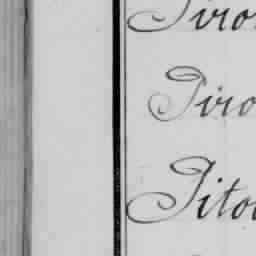 Tiro
Tiro
Tito